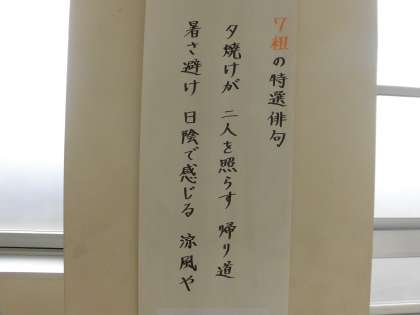 7組の特選俳句
夕焼けが 二人を照らす 帰り道
暑さ避け 日陰で感じる 涼風や